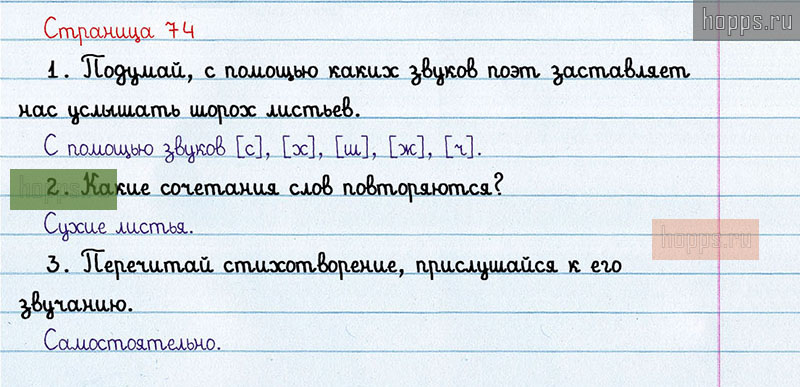 hopps.ru
Страница 74
1. Подумай, с помощью каких звуков поэт заставляет
нас услышать шорох листьев.
С помощью звуков [с], [х], [ш], [ж], [ч].
hopps.ru
2. Какие сочетания слов повторяются?
Сухие листья.
hopps.ru
3. Перечитай стихотворение, прислушайся к его
звучанию.
Самостоятельно.